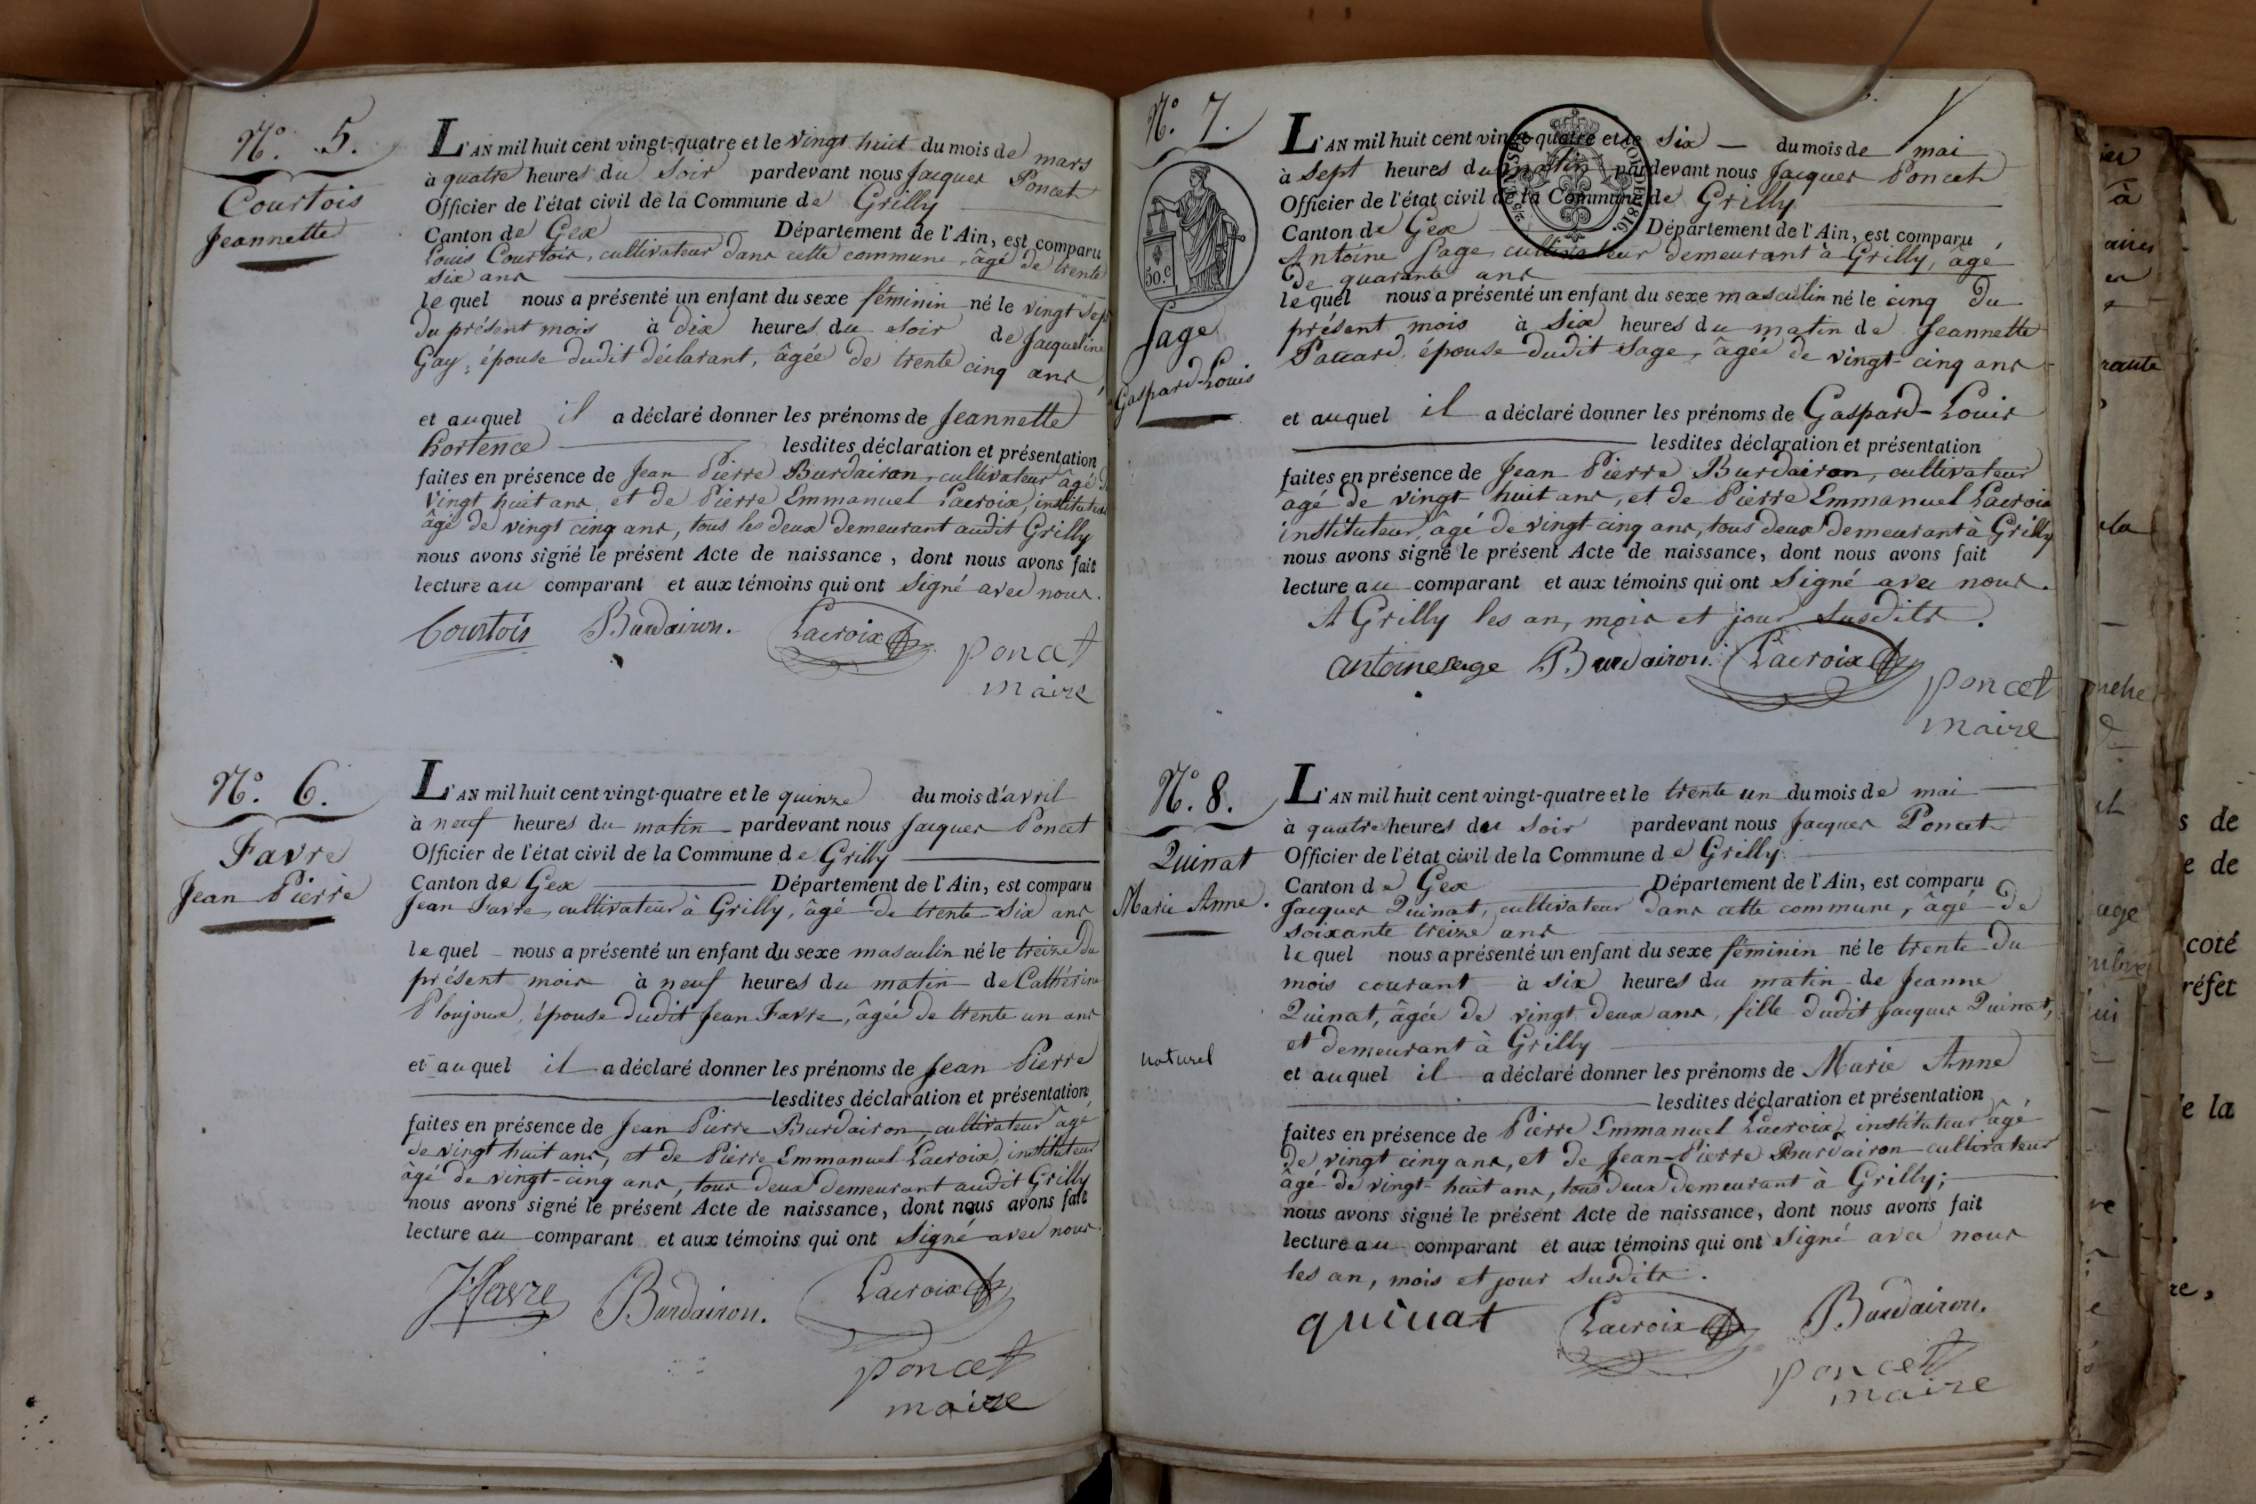 N.° 5.
Courtois
Jeannette
L'AN mil huit cent vingt-quatre et le vingt huit du mois de mars
à quatre heures du soir pardevant nous Jacques Poncet
Officier de l'état civil de la Commune de Grilly
Canton de Gex Département de l'Ain, est comparu
Louis Courtois, cultivateur dans cette commune, âgé de trente
six ans
le quel nous a présenté un enfant du sexe féminin né le vingt sept
du présent mois à dix heures du soir de Jacqueline
Gay, épouse dudit déclarant, âgée de trente cinq ans,
et auquel il a déclaré donner les prénoms de Jeannette
hortence lesdites déclaration et présentation
faites en présence de Jean Pierre Burdairon, cultivateur âgé de
vingt huit ans, et de Pierre Emmanuel Lacroix, instituteur
âgé de vingt cinq ans, tous les deux demeurant audit Grilly
nous avons signé le présent Acte de naissance, dont nous avons fait
lecture au comparant et aux témoins qui ont signé avec nous.
Courtois Burdairon. Lacroix
poncet
maire
N.° 6.
Favre
Jean Pierre
L'AN mil huit cent vingt-quatre et le quinze du mois d'avril
à neuf heures du matin pardevant nous Jacques Poncet
Officier de l'état civil de la Commune de Grilly
Canton de Gex Département de l'Ain, est comparu
Jean Favre, cultivateur à Grilly, âgé de trente six ans
le quel nous a présenté un enfant du sexe masculin né le treize du
présent mois à neuf heures du matin de Cathérine
Ploujoux, épouse dudit Jean Favre, âgée de trente un ans
et auquel il a déclaré donner les prénoms de Jean Pierre
lesdites déclaration et présentation
faites en présence de Jean Pierre Burdairon, cultivateur âgé
de vingt huit ans, et de Pierre Emmanuel Lacroix, instituteur
âgé de vingt-cinq ans, tous deux demeurant audit Grilly
nous avons signé le présent Acte de naissance, dont nous avons fait
lecture au comparant et aux témoins qui ont signé avec nous.
J. Favre Burdairon. Lacroix
poncet
maire
N.° 7.
50.c
Sage
Gaspard-Louis
L'AN mil huit cent vingt-quatre et le six du mois de mai
à sept heures du matin pardevant nous Jacques Poncet
Officier de l'état civil de la Commune de Grilly
Canton de Gex Département de l'Ain, est comparu
Antoine Sage cultivateur demeurant à Grilly, âgé
de quarante ans
le quel nous a présenté un enfant du sexe masculin né le cinq du
présent mois à six heures du matin de Jeannette
Paccard, épouse dudit Sage, âgée de vingt-cinq ans
et auquel il a déclaré donner les prénoms de Gaspard-Louis
lesdites déclaration et présentation
faites en présence de Jean Pierre Burdairon, cultivateur
agé de vingt huit ans, et de Pierre Emmanuel Lacroix
instituteur, âgé de vingt-cinq ans, tous deux demeurant à Grilly
nous avons signé le présent Acte de naissance, dont nous avons fait
lecture au comparant et aux témoins qui ont signé avec nous.
A Grilly les an, mois et jour susdits.
antoine sage Burdairon. Lacroix
poncet
maire
N.° 8.
Quinat
Marie Anne.
naturel
L'AN mil huit cent vingt-quatre et le trente un du mois de mai
à quatre heures du soir pardevant nous Jacques Poncet
Officier de l'état civil de la Commune de Grilly
Canton de Gex Département de l'Ain, est comparu
Jacques Quinat, cultivateur dans cette commune, âgé de
soixante treize ans
le quel nous a présenté un enfant du sexe féminin né le trente du
mois courant à six heures du matin de Jeanne
Quinat, âgée de vingt deux ans, fille dudit Jacques Quinat,
et demeurant à Grilly
et auquel il a déclaré donner les prénoms de Marie Anne
lesdites déclaration et présentation
faites en présence de Pierre Emmanuel Lacroix, instituteur âgé
de vingt cinq ans, et de Jean-Pierre Burdairon cultivateur
âgé de vingt-huit ans, tous deux demeurant à Grilly;
nous avons signé le présent Acte de naissance, dont nous avons fait
lecture au comparant et aux témoins qui ont signé avec nous
les an, mois et jour susdits.
quinat Lacroix Burdairon.
poncet
maire